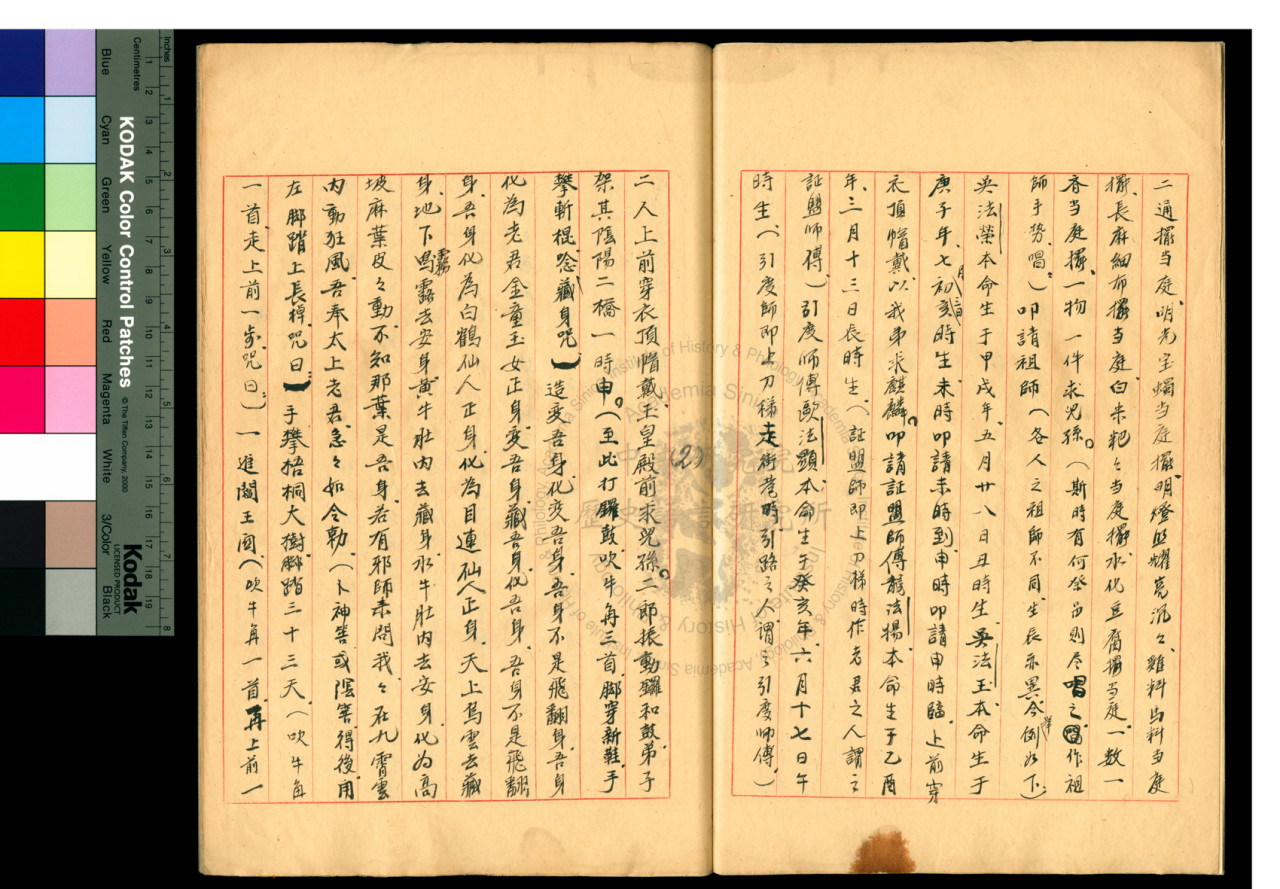 二通擺当庭、明光宝燭当庭擺、明燈照耀亮沉々、雞料馬料当庭
擺、長麻細布擺当庭、白米粑々当庭擺、水化豆腐擺当庭、一数一
香当庭擺、一物一件求児孫。(斯時有何祭品則尽唱之作祖
師手势、唱:)叩請祖師(各人之祖師不同、生長亦異、今例如下:)
吳法榮本命生于甲戌年、五月廿八日丑時生、吳法玉本命生于
庚子年、七月初八三日亥時生、未時叩請未時到、申時叩請申時臨、上前穿
衣頂帽戴、以我弟求麒麟。叩請証盟師傅龍法揚本命生于乙酉
年、三月十三日長時生、(証盟師即上刀梯時作老君之人謂之
証盟师傅、)引度师傅歐法顯本命生于癸亥年、六月十七日午
時生、(引度師即上刀梯走街巷時引路之人謂之引度师傅、)
二人上前穿衣頂帽戴、玉皇殿前求児孫、二郎振動鑼和鼓、弟子
架其陰陽二橋一時申。(至此打鑼鼓、吹牛角三首、脚穿新鞋、手
攀斬棍、唸藏身咒:)造变吾身、化变吾身、吾身不是飛翻身、吾身
化為老君金童玉女正身、变吾身、藏吾身、化吾身、吾身不是飛翻
身、吾身化為白鶴仙人正身、化為目連仙人正身、天上烏雲去藏
身、地下雾露去安身、黄牛肚内去藏身、水牛肚内去安身、化為高
坡麻葉皮々動、不知那葉是吾身、若有邪師来問我、々在九霄雲
内動狂風、吾奉太上老君急々如令勅、(卜神筶或陰筶、得後、用
左脚踏上長棹、咒曰:)手攀梧桐大樹、脚踏三十三天、(吹牛角
一首、走上前一步、咒曰:)一進閻王國(吹牛角一首、再上前一
(2)
中央研究院
歷史語言研究所
Academia Sinica
Institute of History & Philology
KODAK Color Control Patches
© The Tiffen Company, 2000
Kodak
LICENSED PRODUCT
Inches
Centimetres
Blue
Cyan
Green
Yellow
Red
Magenta
White
3/Color
Black